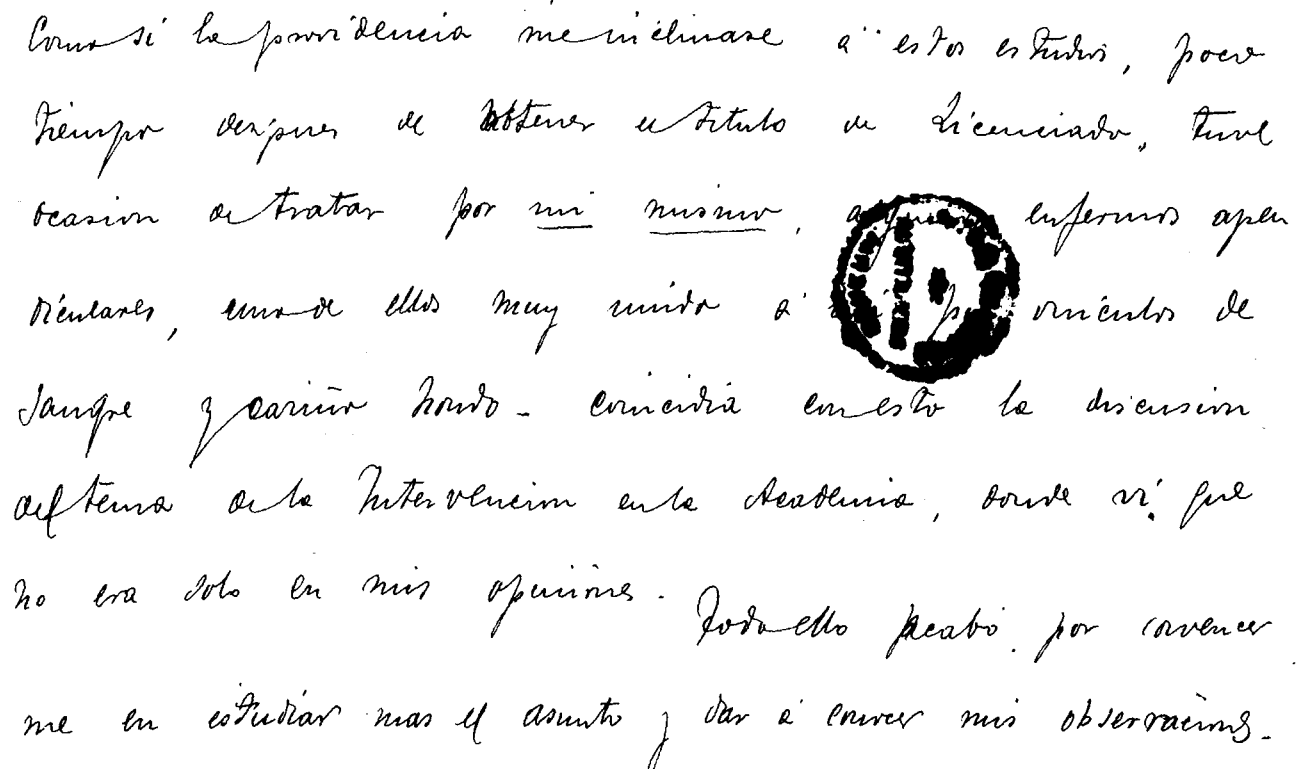 Como si la providencia me inclinase á estos estudios, poco
tiempo despues de obtener el titulo de Licenciado, tuve
ocasion de tratar por mi mismo, algunos enfermos apen
diculares, uno de ellos muy unido á mi por vinculos de
sangre y cariño hondo - coincidia con esto la discusion
del tema de la Intervencion en la Academia, donde ví que
no era solo en mis opiniones.
Todo ello acabó por convencer
me en estudiar mas el asunto y dar á conocer mis observaciones.